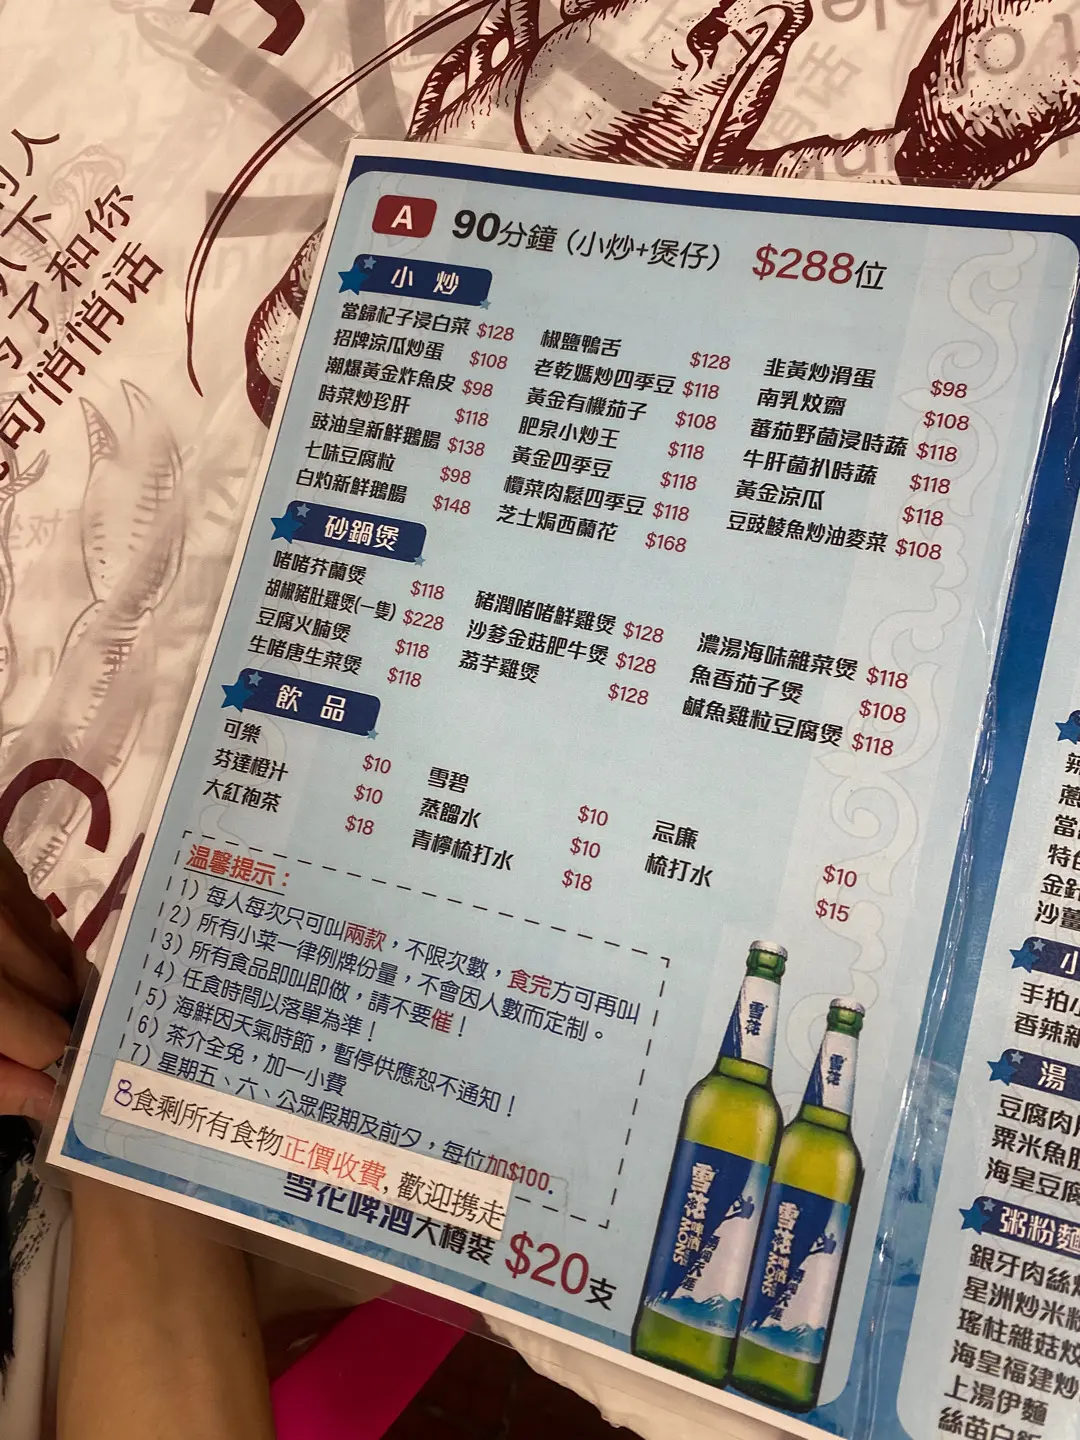 的人
下
为了和你
句悄悄话
A 90分鐘（小炒+煲仔） $288位
小炒
當歸杞子浸白菜 $128
招牌涼瓜炒蛋 $108
潮爆黃金炸魚皮 $98
時菜炒珍肝 $118
豉油皇新鮮鵝腸 $138
七味豆腐粒 $98
白灼新鮮鵝腸 $148
椒鹽鴨舌 $128
老乾媽炒四季豆 $118
黃金有機茄子 $108
肥泉小炒王 $118
黃金四季豆 $118
欖菜肉鬆四季豆 $118
芝士焗西蘭花 $168
韭黃炒滑蛋 $98
南乳炆齋 $108
蕃茄野菌浸時蔬 $118
牛肝菌扒時蔬 $118
黃金涼瓜 $118
豆豉鯪魚炒油麥菜 $108
砂鍋煲
啫啫芥蘭煲 $118
胡椒豬肚雞煲(一隻) $228
豆腐火腩煲 $118
生啫唐生菜煲 $118
豬潤啫啫鮮雞煲 $128
沙爹金菇肥牛煲 $128
荔芋雞煲 $128
濃湯海味雜菜煲 $118
魚香茄子煲 $108
鹹魚雞粒豆腐煲 $118
飲品
可樂 $10
芬達橙汁 $10
大紅袍茶 $18
雪碧 $10
蒸餾水 $10
青檸梳打水 $18
忌廉 $10
梳打水 $15
温馨提示：
1）每人每次只可叫兩款，不限次數，食完方可再叫
2）所有小菜一律例牌份量，不會因人數而定制。
3）所有食品即叫即做，請不要催！
4）任食時間以落單為準！
5）海鮮因天氣時節，暫停供應恕不通知！
6）茶介全免，加一小費
7）星期五、六、公眾假期及前夕，每位加$100.
8食剩所有食物正價收費,歡迎携走
雪花啤酒大樽裝 $20支
雪花
雪花
雪花
啤酒
雪花
啤酒
特色
金針
沙薑
小
手拍小
香辣新
湯
豆腐肉
粟米魚肚
海皇豆腐
粥粉麵
銀牙肉絲炒
星洲炒米粉
瑤柱雜菇炆
海皇福建炒
上湯伊麵
絲苗白飯